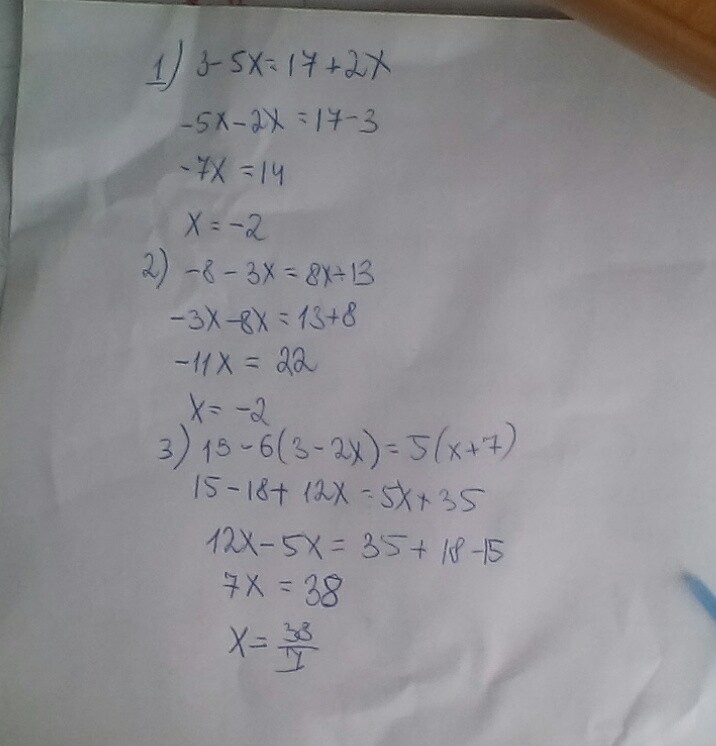 1) 3-5x=17+2x
-5x-2x=17-3
-7x=14
x=-2
2) -8-3x=8x+13
-3x-8x=13+8
-11x=22
x=-2
3) 15-6(3-2x)=5(x+7)
15-18+12x=5x+35
12x-5x=35+18-15
7x=38
x=38/7